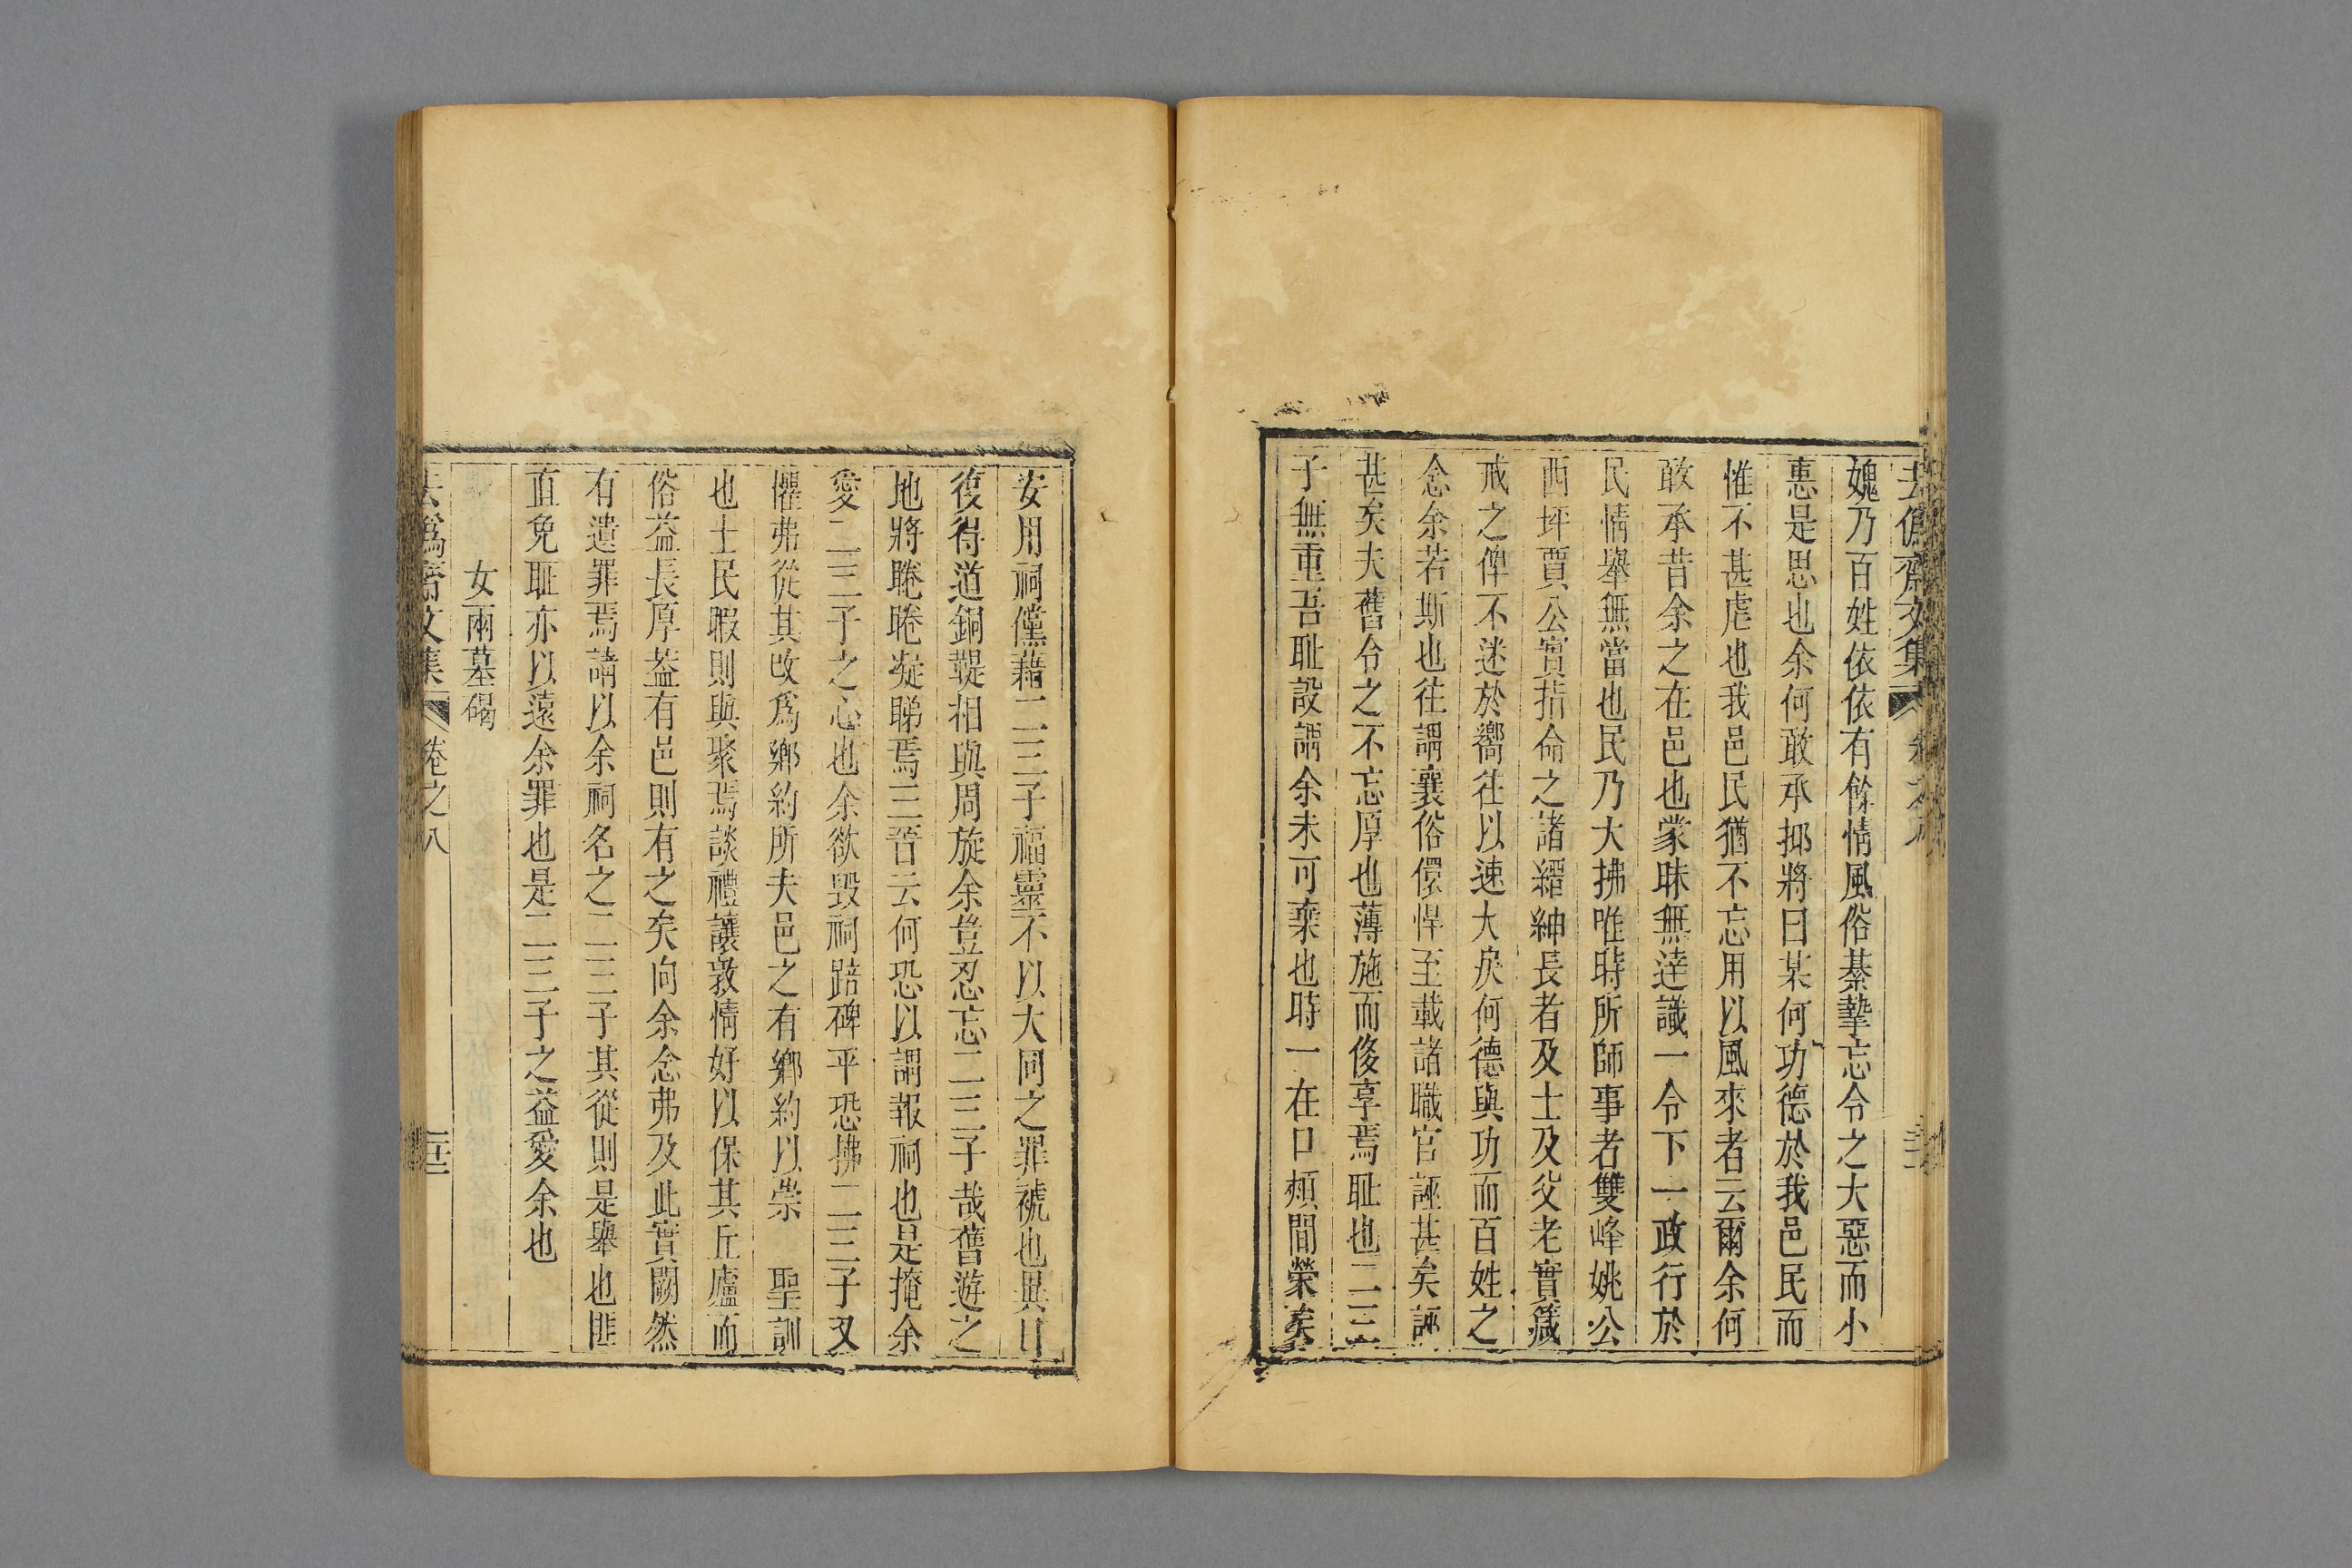 去僞齋文集
媿乃百姓依依有餘情風俗綦摯忘令之大惡而小
惠是思也余何敢承抑將曰某何功德於我邑民而
惟不甚虐也我邑民猶不忘用以風來者云爾余何
敢承昔余之在邑也蒙昧無逹識一令下一政行於
民情舉無當也民乃大拂唯時所師事者雙峰姚公
西坪賈公實指命之諸縉紳長者及士及父老實箴
戒之俾不迷於嚮往以速大戾何德與功而百姓之
念余若斯也往謂襄俗儇悍至載諸職官誣甚矣誣
甚矣夫舊令之不忘厚也薄施而侈享焉耻也二三
子無重吾耻設謂余未可棄也時一在口頰間榮矣
安用祠儻藉二三子福靈不以大同之罪褫也異日
復得道銅鞮相與周旋余豈忍忘二三子哉舊遊之
地將睠睠凝睇焉三晉云何恐以謂報祠也是掩余
愛二三子之心也余欲毀祠踣碑平恐拂二三子又
懼弗從其改爲鄉約所夫邑之有鄉約以崇　聖訓
也士民暇則與聚焉談禮讓敦情好以保其丘廬而
俗益長厚葢有邑則有之矣向余念弗及此實闕然
有遺罪焉請以余祠名之二三子其從則是舉也匪
直免耻亦以遠余罪也是二三子之益愛余也
女兩墓碣
去爲齋文集 卷之八